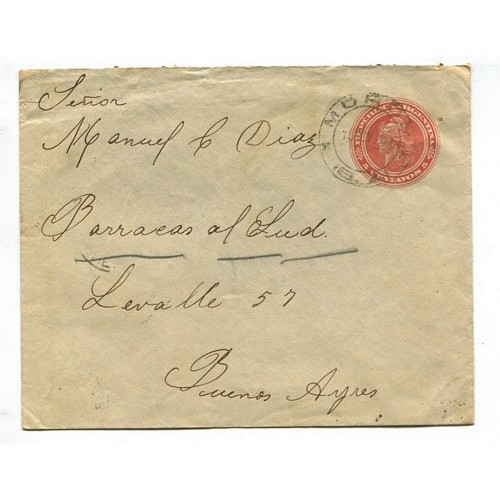 Señor
Manuel C Diaz
Barracas al Sud.
Levalle 57
Buenos Ayres
REPUBLICA ARGENTINA
5 CENTAVOS 5